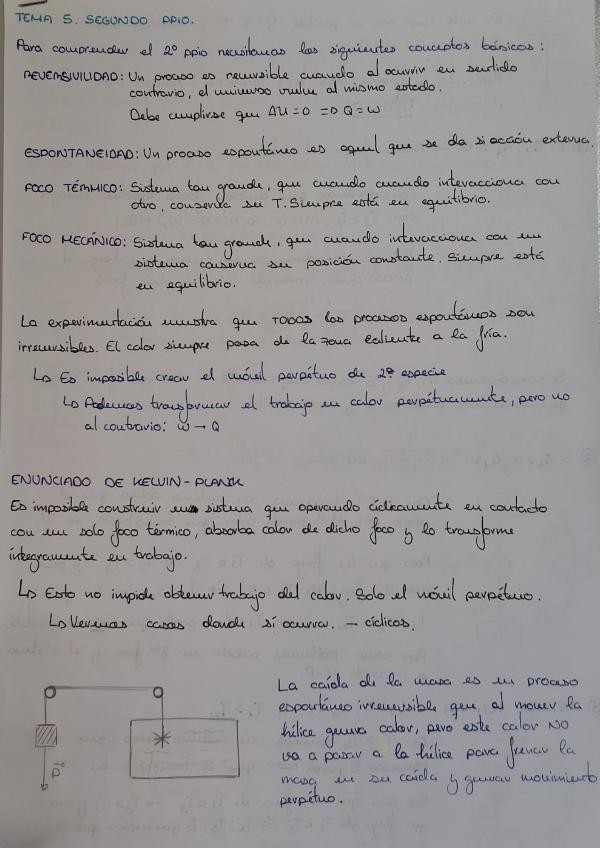 TEMA 5. SEGUNDO PPIO.
Para comprender el 2º ppio necesitamos los siguientes conceptos básicos:
REVERSIVILIDAD: Un proceso es reversible cuando al ocurrir en sentido
contrario, el universo vuelve al mismo estado.
Debe cumplirse que ΔU=0 => Q=W
ESPONTANEIDAD: Un proceso espontáneo es aquel que se da si acción externa.
FOCO TÉRMICO: Sistema tan grande, que cuando cuando interacciona con
otro, conserva su T. Siempre está en equilibrio.
FOCO MECÁNICO: Sistema tan grande, que cuando interacciona con un
sistema conserva su posición constante. Siempre está
en equilibrio.
La experimentación muestra que TODOS los procesos espontáneos son
irreversibles. El calor siempre pasa de la zona caliente a la fría.
↳ Es imposible crear el móvil perpétuo de 2ª especie
↳ Podemos transformar el trabajo en calor perpétuamente, pero no
al contrario: W → Q
ENUNCIADO DE KELVIN-PLANK
Es imposible construir un sistema que operando cíclicamente en contacto
con un solo foco térmico, absorba calor de dicho foco y lo transforme
íntegramente en trabajo.
↳ Esto no impide obtener trabajo del calor. Solo el móvil perpétuo.
↳ Veremos casos donde sí ocurra. → cíclicos.
La caída de la masa es un proceso
espontáneo irreversible que al mover la
hélice genera calor, pero este calor NO
va a pasar a la hélice para frenar la
masa en su caída y generar movimiento
perpétuo.
P